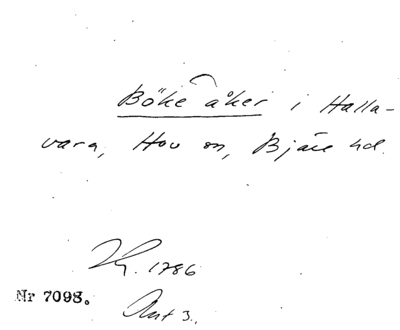 Böke åker i Halla-
vara, Hov sn, Bjäre hd.
1786
Nr 7098.
Akt 3.